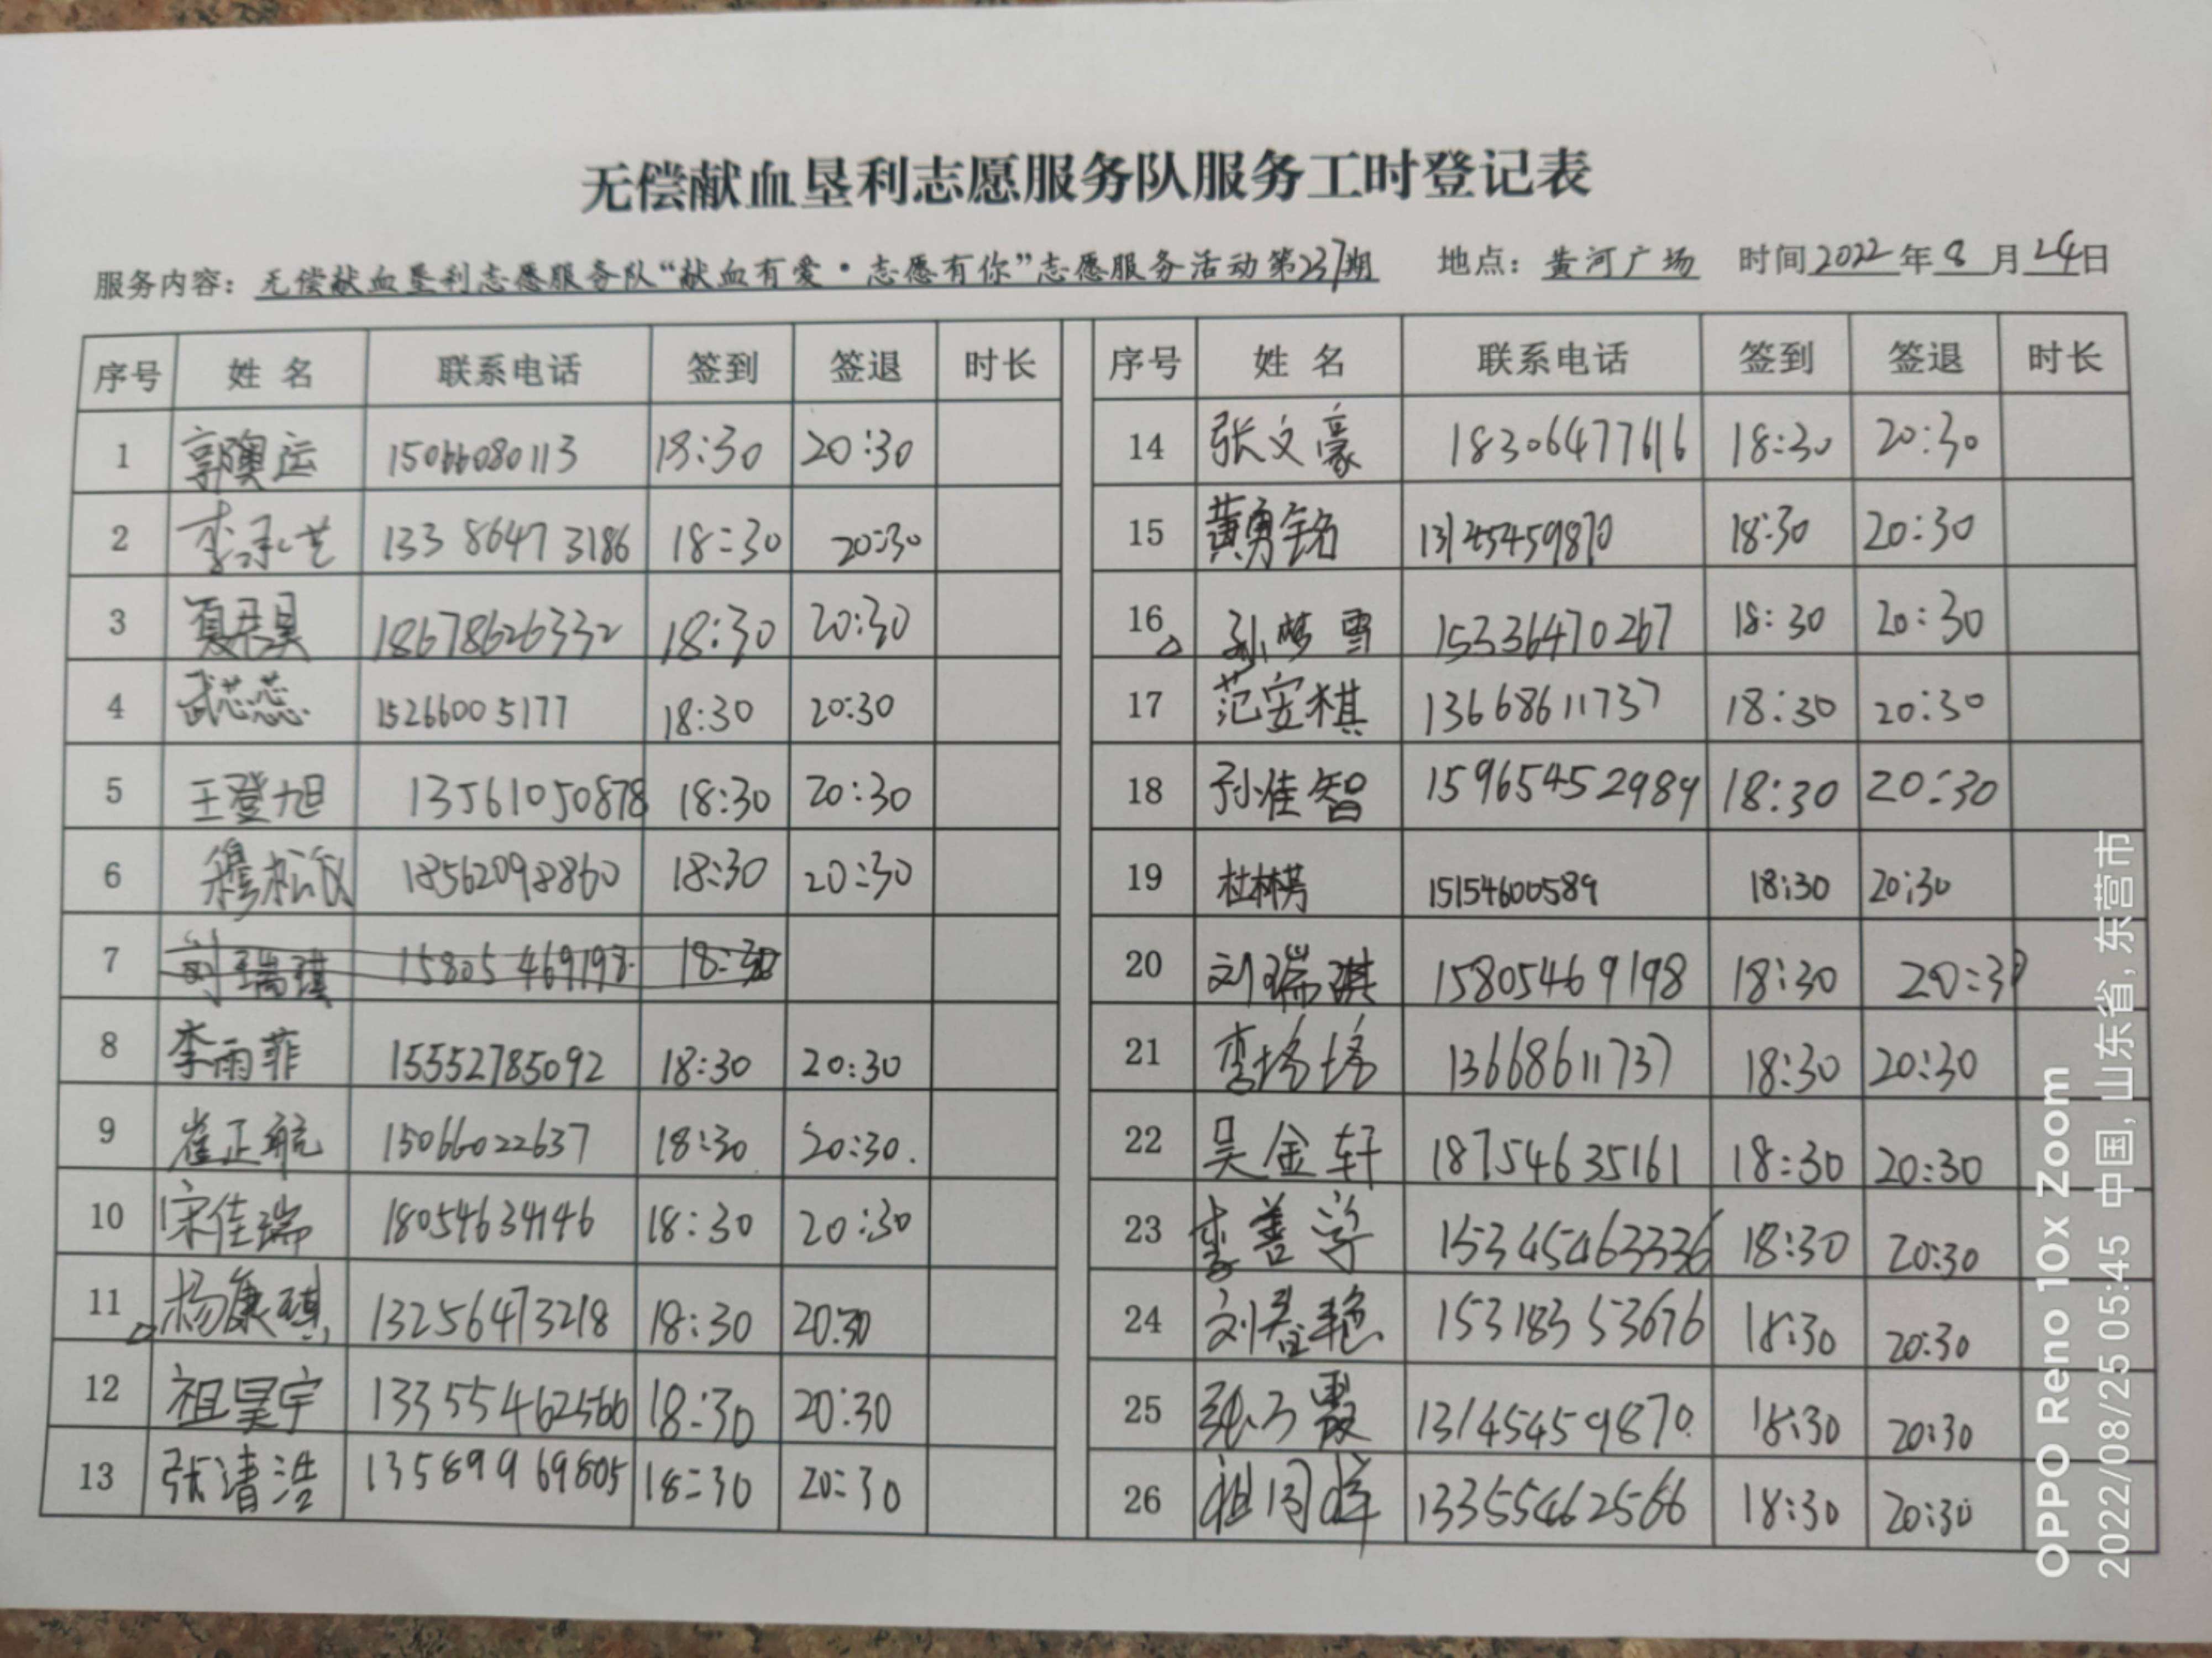 无偿献血垦利志愿服务队服务工时登记表
服务内容：无偿献血垦利志愿服务队“献血有爱·志愿有你”志愿服务活动第237期 地点：黄河广场 时间2022年8月24日
序号 姓名 联系电话 签到 签退 时长 序号 姓名 联系电话 签到 签退 时长
1 郭澳运 15066080113 18:30 20:30
14 张文豪 18306477616 18:30 20:30
2 李承艺 133 8647 3186 18:30 20:30
15 黄勇铭 13145459870 18:30 20:30
3 夏君昊 18678626332 18:30 20:30
16 孙梦雪 15336470267 18:30 20:30
4 武芯蕊 15266005177 18:30 20:30
17 范安棋 13668611737 18:30 20:30
5 王登旭 13561050878 18:30 20:30
18 孙佳智 15965452989 18:30 20:30
6 穆松 18562098860 18:30 20:30
19 杜林芳 15154600589 18:30 20:30
7 刘瑞琪 15805469198 18:30
20 刘瑞琪 15805469198 18:30 20:30
8 李雨菲 15552785092 18:30 20:30
21 李 13668611737 18:30 20:30
9 崔正航 15066022637 18:30 20:30.
22 吴金轩 18754635161 18:30 20:30
10 宋佳瑞 18054634146 18:30 20:30
23 李善学 15345463336 18:30 20:30
11 杨康琪 13256473218 18:30 20:30
24 刘春艳 15318353676 18:30 20:30
12 祖昊宇 13355462566 18:30 20:30
25 13145459870 18:30 20:30
13 张清浩 13589969805 18:30 20:30
26 祖同祥 13355462566 18:30 20:30
OPPO Reno 10x Zoom
2022/08/25 05:45 中国, 山东省, 东营市